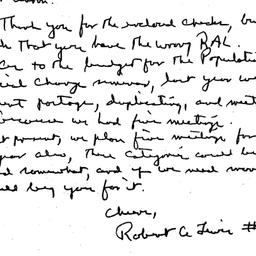 Thank you for the enclosed checks, bu
k that you have the wrong RAL.
to the budget for the Populati
cial Change seminar, last year we
ent postage, duplicating, and meet
because we had five meetings.
t present, we plan five meetings for
year also, these categories could be
d somewhat, and if we need more
ld beg you for it.
Cheers,
Robert A. Lewis #